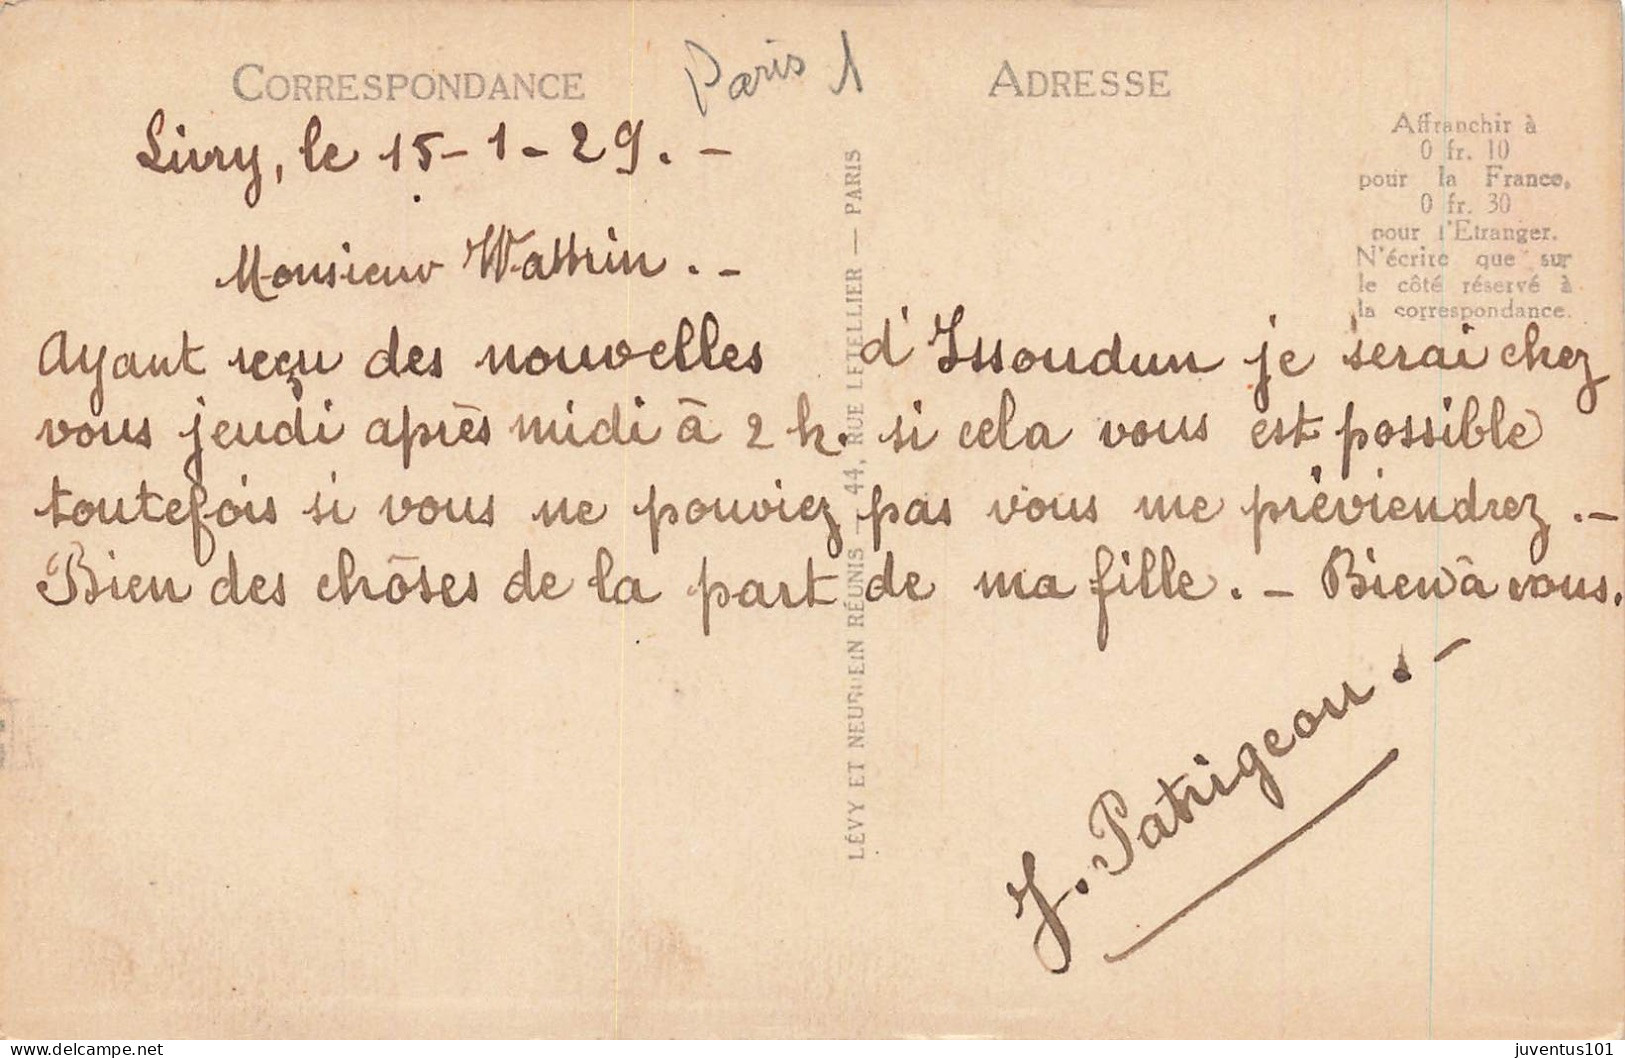 Paris 1
CORRESPONDANCE
ADRESSE
Affranchir à
0 fr. 10
pour la France,
0 fr. 30
pour l'Etranger.
N'écrire que sur
le côté réservé à
la correspondance.
Livry, le 15-1-29.-
Monsieur Wattrin.-
Ayant reçu des nouvelles d'Issoudun je serai chez
vous jeudi après midi à 2 h. si cela vous est possible
toutefois si vous ne pouviez pas vous me préviendrez.-
Bien des chôses de la part de ma fille.- Bien à vous.
J. Patrigeon.-
LÉVY ET NEURDEIN RÉUNIS - 44, RUE LETELLIER — PARIS
delcampe.net
juventus101